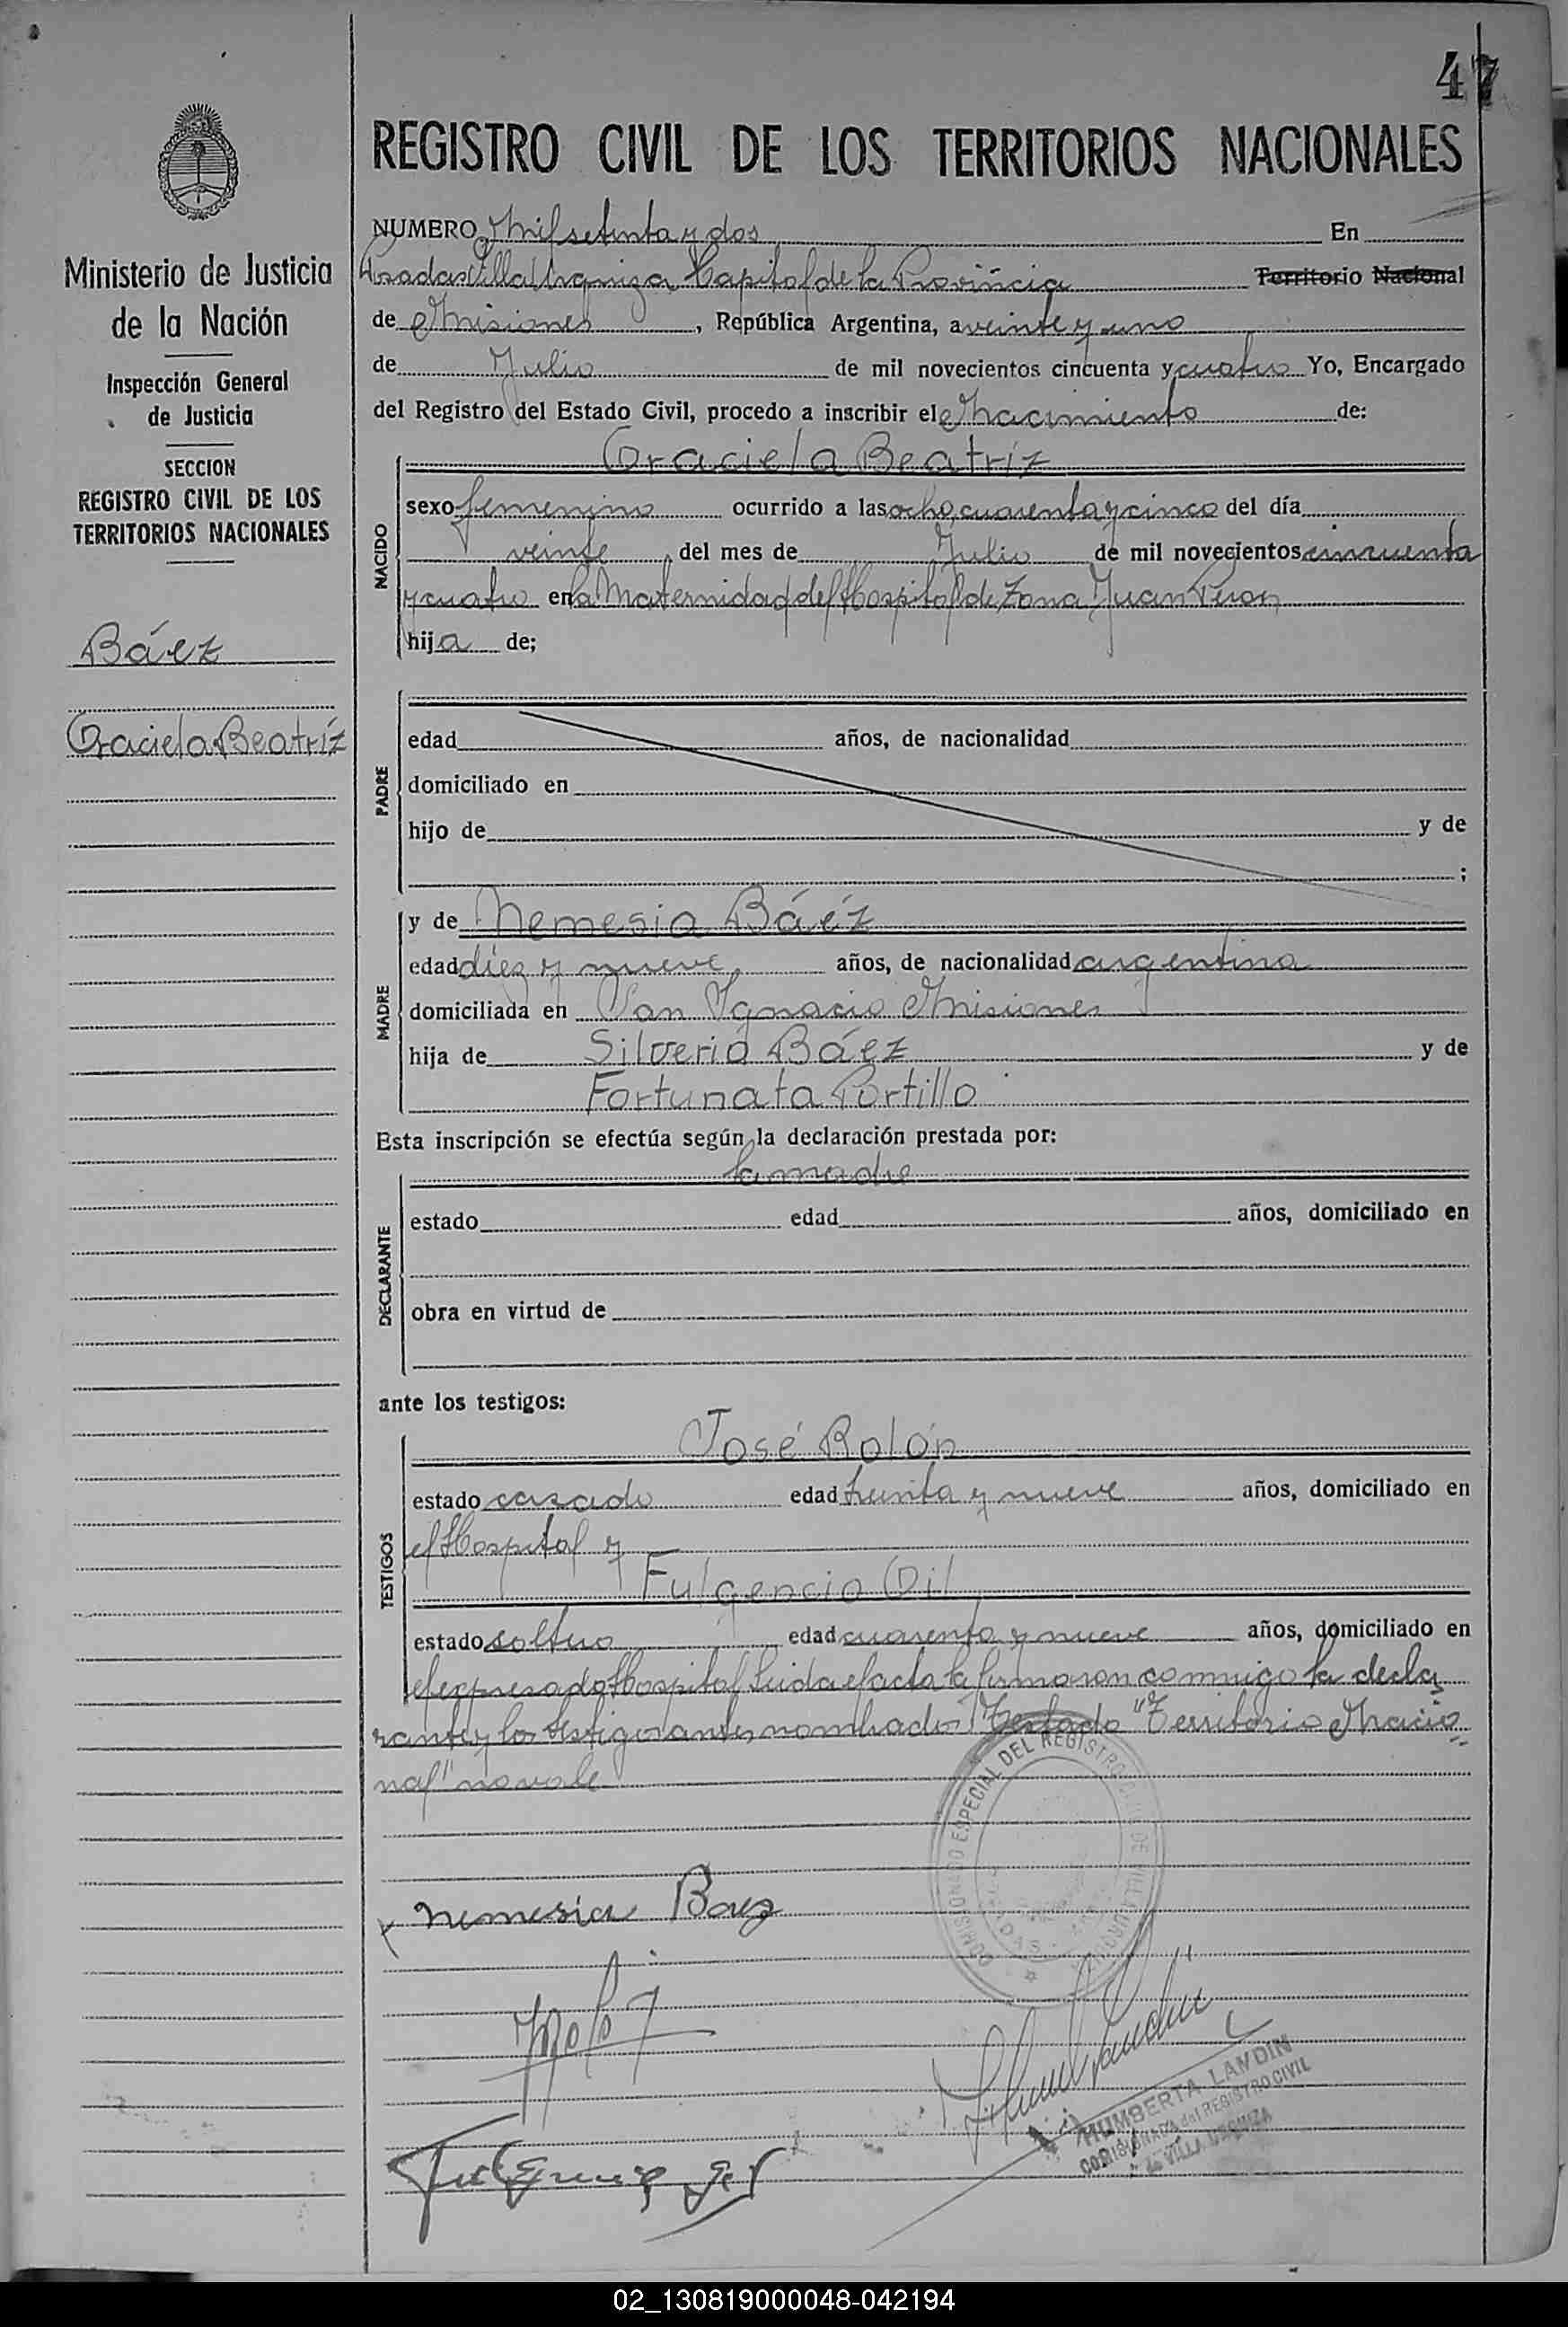 47
REGISTRO CIVIL DE LOS TERRITORIOS NACIONALES
Ministerio de Justicia
de la Nación
Inspección General
de Justicia
SECCION
REGISTRO CIVIL DE LOS
TERRITORIOS NACIONALES
Báez
Graciela Beatríz
NUMERO Mil setenta y dos En
Posadas Villa Urquiza Capital de la Provincia Territorio Nacional
de Misiones, República Argentina, a veinte y uno
de Julio de mil novecientos cincuenta y cuatro Yo, Encargado
del Registro del Estado Civil, procedo a inscribir el Nacimiento de:
Graciela Beatríz
NACIDO
sexo femenino ocurrido a las ocho cuarenta y cinco del día
veinte, del mes de Julio de mil novecientos cincuenta
y cuatro en la Maternidad del Hospital de Zona Juan Peron
hija de;
PADRE
edad años, de nacionalidad
domiciliado en
hijo de y de
;
MADRE
y de Nemesia Báéz
edad diez y nueve, años, de nacionalidad argentina
domiciliada en San Ignacio Misiones
hija de Silverio Báez y de
Fortunata Portillo
Esta inscripción se efectúa según la declaración prestada por:
la madre
DECLARANTE
estado edad años, domiciliado en
obra en virtud de
ante los testigos:
José Rolón
TESTIGOS
estado casado edad treinta y nueve años, domiciliado en
el Hospital y
Fulgencio Gil
estado soltero edad cuarenta y nueve años, domiciliado en
el expresado Hospital Leida el acta la firmaron conmigo la decla
rante y los testigos antes nombrados Testado "Territorio Nacio
nal" no vale
COMISIONADO ESPECIAL DEL REGISTRO CIVIL DE VILLA URQUIZA
Nemesia Baez
Fulgencio Gil
HUMBERTA LANDIN
COMISIONADA del REGISTRO CIVIL
de VILLA URQUIZA
02_130819000048-042194